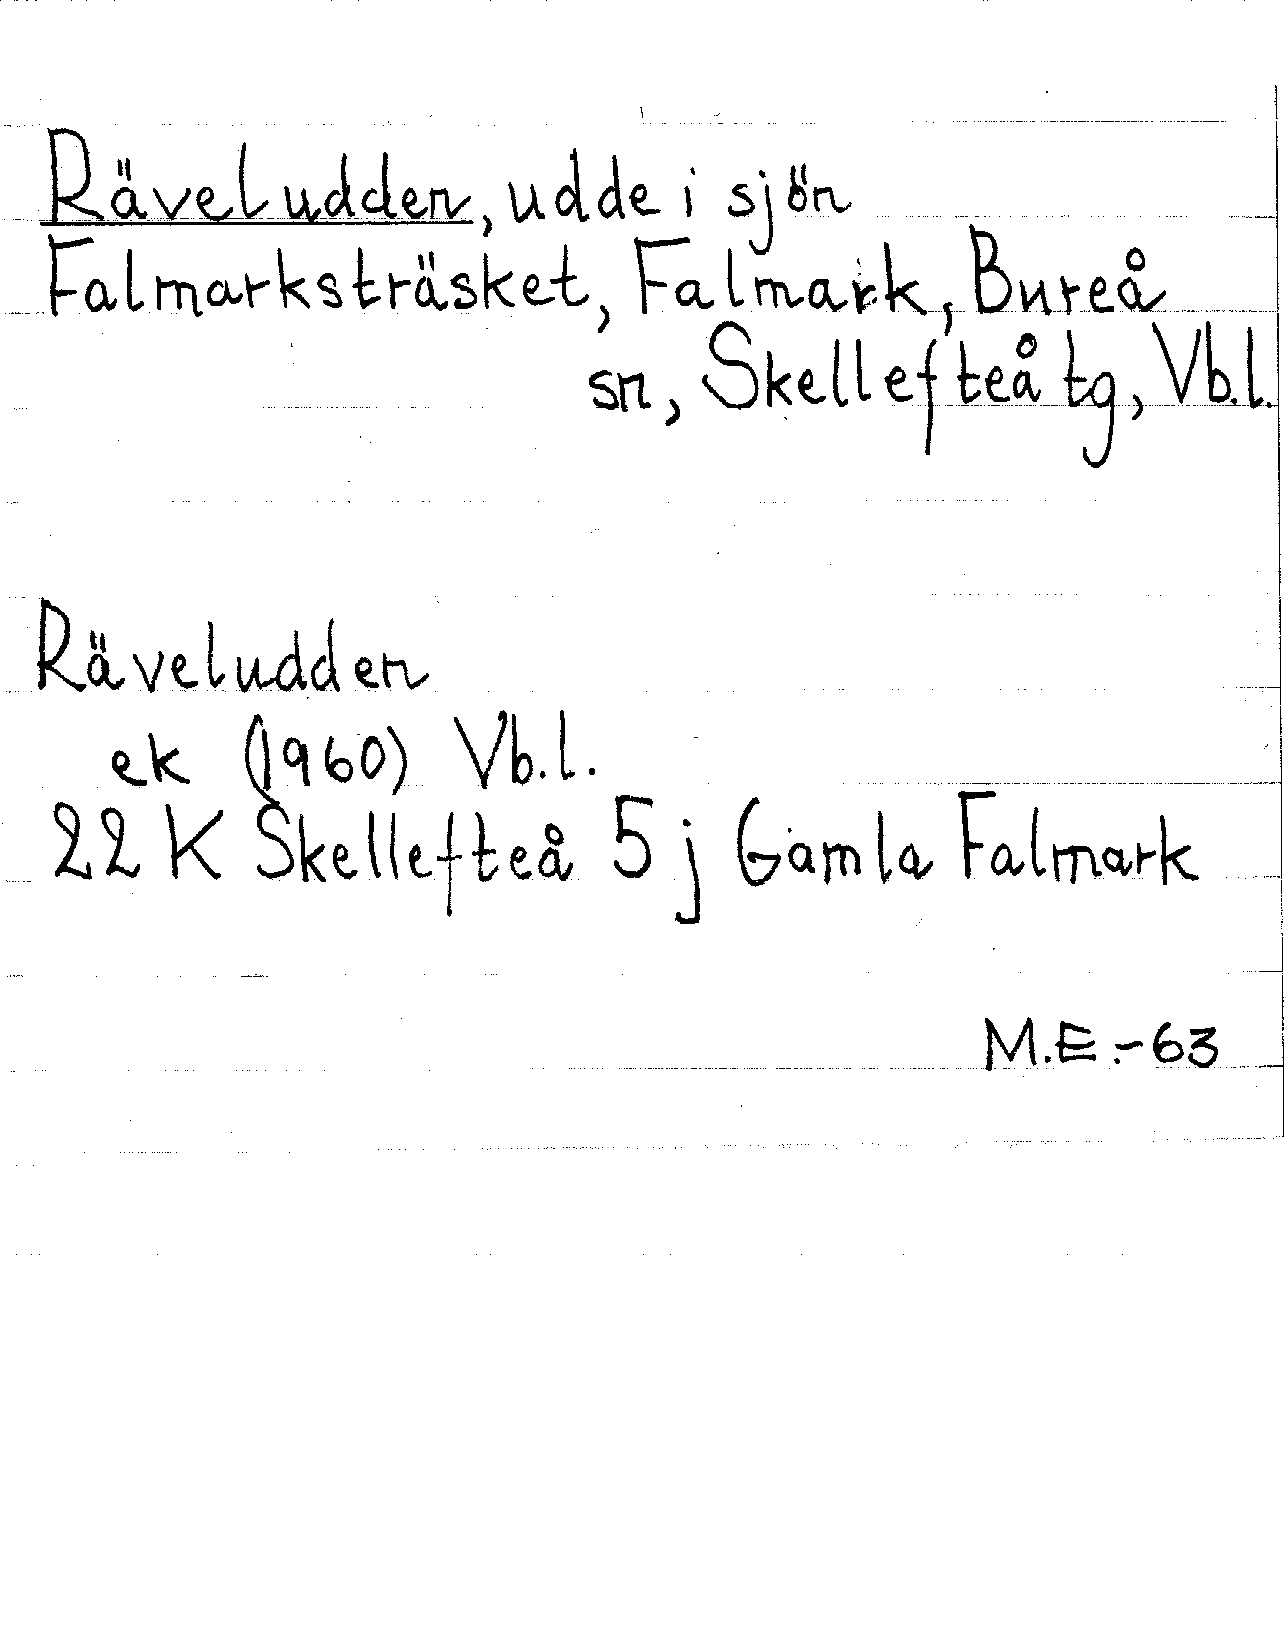 Räveludden, udde i sjön
Falmarksträsket, Falmark, Bureå
sn, Skellefteå tg, Vb.l.
Räveludden
ek (1960) Vb.l.
22 K Skellefteå 5 j Gamla Falmark
M.E.-63